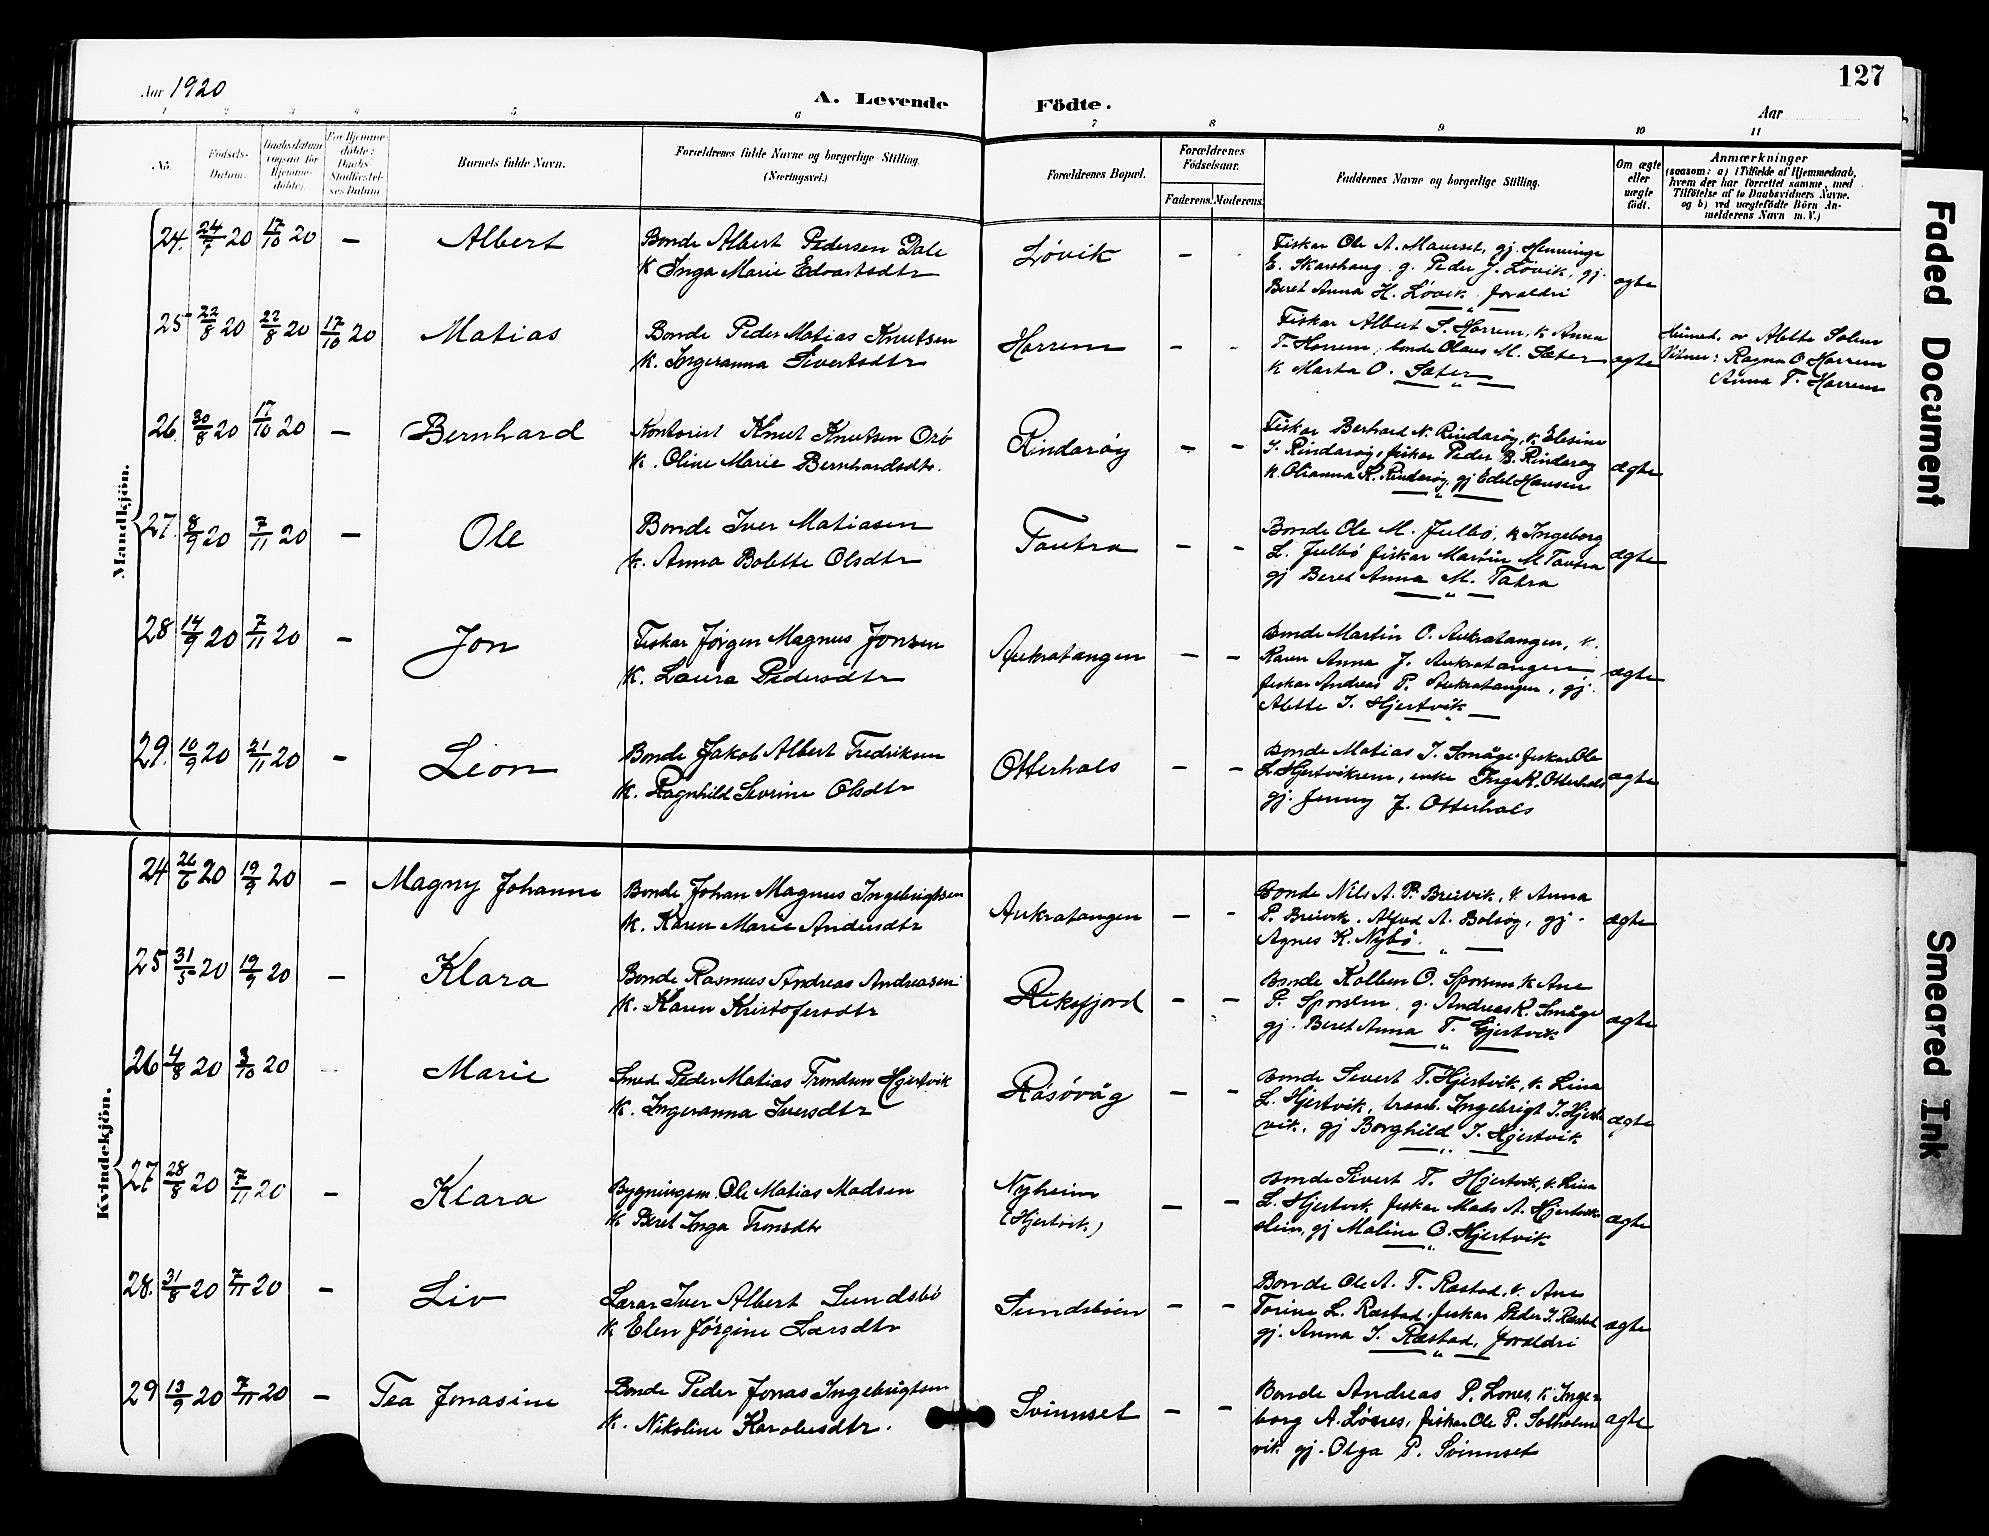 127
Aar 1920
A. Levende Födte.
Aar
1 2 3 4 5 6 7 8 9 10 11
No. Födsels-Datum. Daabsdatum (ogsaa for Hjemme-döbte). Fra Hjemme-döbte: Daabs-Stadfæstel-ses Datum Barnets fulde Navn. Forældrenes fulde Navne og borgerlige Stilling. (Næringsvei.) Forældrenes Bopæl. Forældrenes Födselsaar. Faderens. Moderens. Faddernes Navne og borgerlige Stilling. Om ægte eller uægte födt.
Anmærkninger
(saasom: a) i Tilfælde af Hjemmedaab,
hvem der har forrettet samme, med
Tilföielse af to Daabsvidners Navne.
og b) ved uægtefödte Börn An-
melderens Navn m. V.)
Mandkjön.
24. 24/7 20 17/10 20 — Albert
Bonde Albert Pedersen Dale
k Inga Marie Edvartsdtr
Løvik - -
Fiskar Ole A. Maurset, gj Henninge
E. Skarshaug. g. Peder J. Løvik, gj.
Beret Anna H. Løvik. foraldri
ægte
25 22/8 20 22/8 20 17/10 20 Matias
Bonde Peder Matias Knutsen
k. Ingeranna Sivertsdtr
Harrem - -
Fiskar Albert S. Harrem, k Anna
T. Harrem, bonde Olaus M. Sæter
k Marta O. Sæter
ægte
Heimed. av Alette Solem
Vitner: Ragna O Harrem
Anna T. Harrem
26. 30/8 20 17/10 20 — Bernhard
Kontorist Knut Knutsen Orö
k. Oline Marie Bernhardsdtr.
Rindarøy - -
Fiskar Berhard N. Rindarøy, k Elesine
J. Rindarøy, fiskar Peder B. Rindarøy
k. Olianna K. Rindarøy, gj Edel Hansen
ægte
27. 8/9 20 7/11 20 — Ole
Bonde Iver Matiasen
k. Anna Bolette Olsdtr
Tautra - -
Bonde Ole M. Julbö, k Ingeborg
L. Julbö fiskar Martin M Tautra
gj Beret Anna M. Tatra
ægte
28 14/9 20 7/11 20 — Jon
Fiskar Jørgen Magnus Jonsen
k. Laura Pedersdtr
Aukratangen - -
Bonde Martin O. Aukratangen, k.
Karen Anna J. Aukratangen,
fiskar Andreas P. Aukratangen, gj.
Alette I. Hjertvik
ægte
29. 10/9 20 21/11 20 — Leon
Bonde Jakob Albert Fredriksen
k. Ragnhild Sevrine Olsdtr
Otterhals - -
Bonde Matias I. Småge fiskar Ole
L. Hjertviksein, enke Inga K. Otterhals
gj. Jenny J. Otterhals
ægte
Kvindekjön.
24 26/6 20 19/9 20 — Magny Johanne
Bonde Johan Magnus Ingebrigtsen
k. Karen Marie Andersdtr
Aukratangen - -
Bonde Nils A. P. Breivik, k Anna
P. Breivik. Alfred A. Bolsøy, gj.
Agnes K. Nybö.
ægte
25 31/5 20 19/9 20 — Klara
Bonde Rasmus Andreas Andreasen
k. Karen Kristofersdtr
Riksfjord - -
Bonde Kolbein O. Sporsem k Ane
P. Sporsem, g. Andreas R. Småge
gj. Beret Anna T. Gjertvik
ægte
26 4/8 20 3/10 20 Marie
Smed Peder Matias Trondsen Hjertvik
k. Ingeranna Iversdtr
Råsövåg - -
Bonde Sivert T. Hjertvik, k Lina
L. Hjertvik, Ingebrigt I. Hjert-
vik, gj Borghild I. Hjertvik
ægte
27 28/8 20 7/11 20 — Klara
Bygningsm. Ole Matias Madsen
k Beret Inga Tronsdtr
Nyheim
(Hjertvik) - -
Bonde Sivert T. Hjertvik, k Lina
L. Hjertvik fiskar Mads A. Hjertvik-
slein, gj Maline O. Hjertvik
ægte
28. 31/8 20 7/11 20 — Liv
Lærar Iver Albert Sundsbö
k Elen Jörgine Larsdtr
Sundsböen - -
Bonde Ole A. T. Rastad, k. Ane
Torine L. Ræstad, fiskar Peder I. Ræstad
gj. Anna I. Ræstad, foraldri
ægte
29 13/9 20 7/11 20 — Tea Jonasine
Bonde Peder Jonas Ingebrigtsen
k. Nikoline Karolusdtr.
Svinnset - -
Bonde Andreas P. Lønes, k Inge-
borg A. Lönes, fiskar Ole P. Solholm
vik gj. Olga P. Svinnset
ægte
Faded Document
Smeared Ink